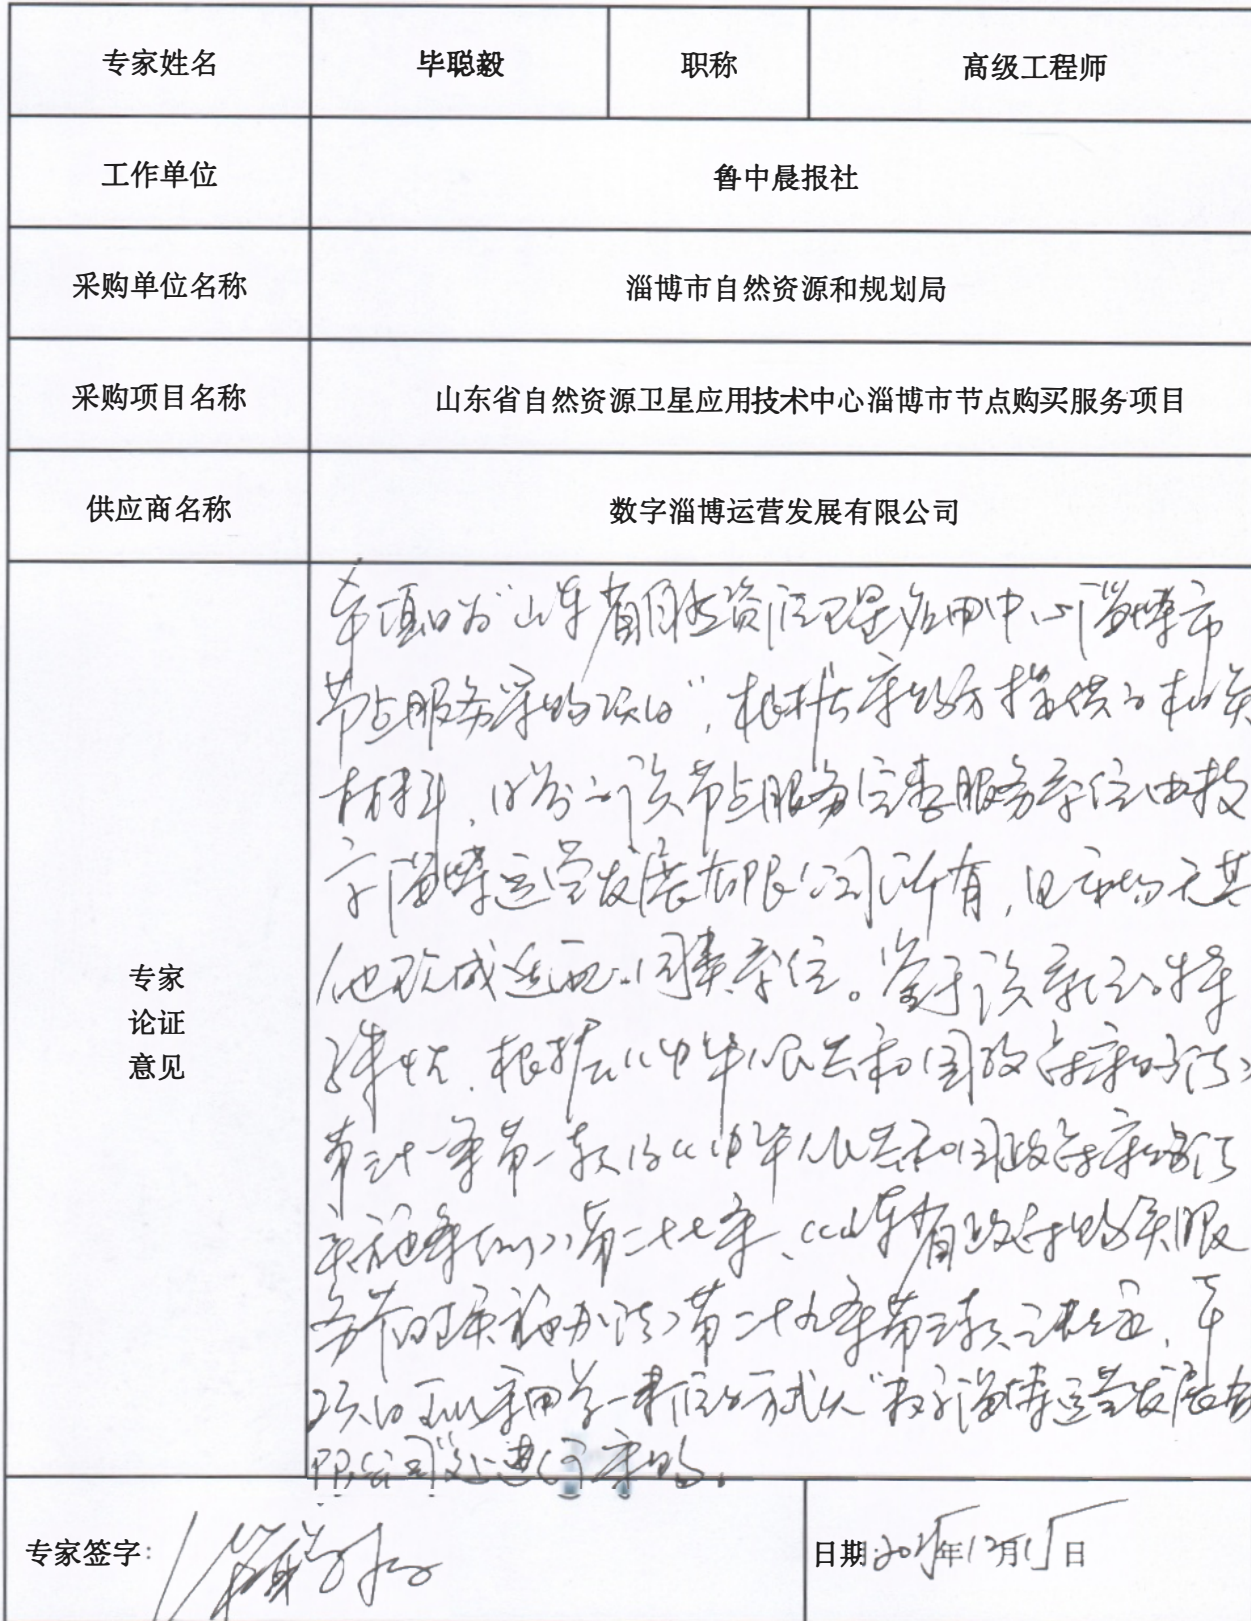 专家姓名 毕聪毅 职称 高级工程师
工作单位 鲁中晨报社
采购单位名称 淄博市自然资源和规划局
采购项目名称 山东省自然资源卫星应用技术中心淄博市节点购买服务项目
供应商名称 数字淄博运营发展有限公司
专家
论证
意见
本项目为“山东省自然资源卫星应用中心淄博市
节点服务采购项目”,根据采购方提供的相关
材料,目前该节点服务 服务 由数
字淄博运营发展有限公司所有,且市场无其
他现成适配同类 。鉴于该 特
殊性,根据《中华人民共和国政府采购法》
第三十一条第一款 《中华人民共和国政府采购法
实施条例》第二十七条、《山东省政府购买服
务 实施办法》第二十九条第 款之 ,本
项目可以采用单一来源的方式从“数字淄博运营发展有
限公司”处进行采购。
专家签字: 日期: 年12月 日